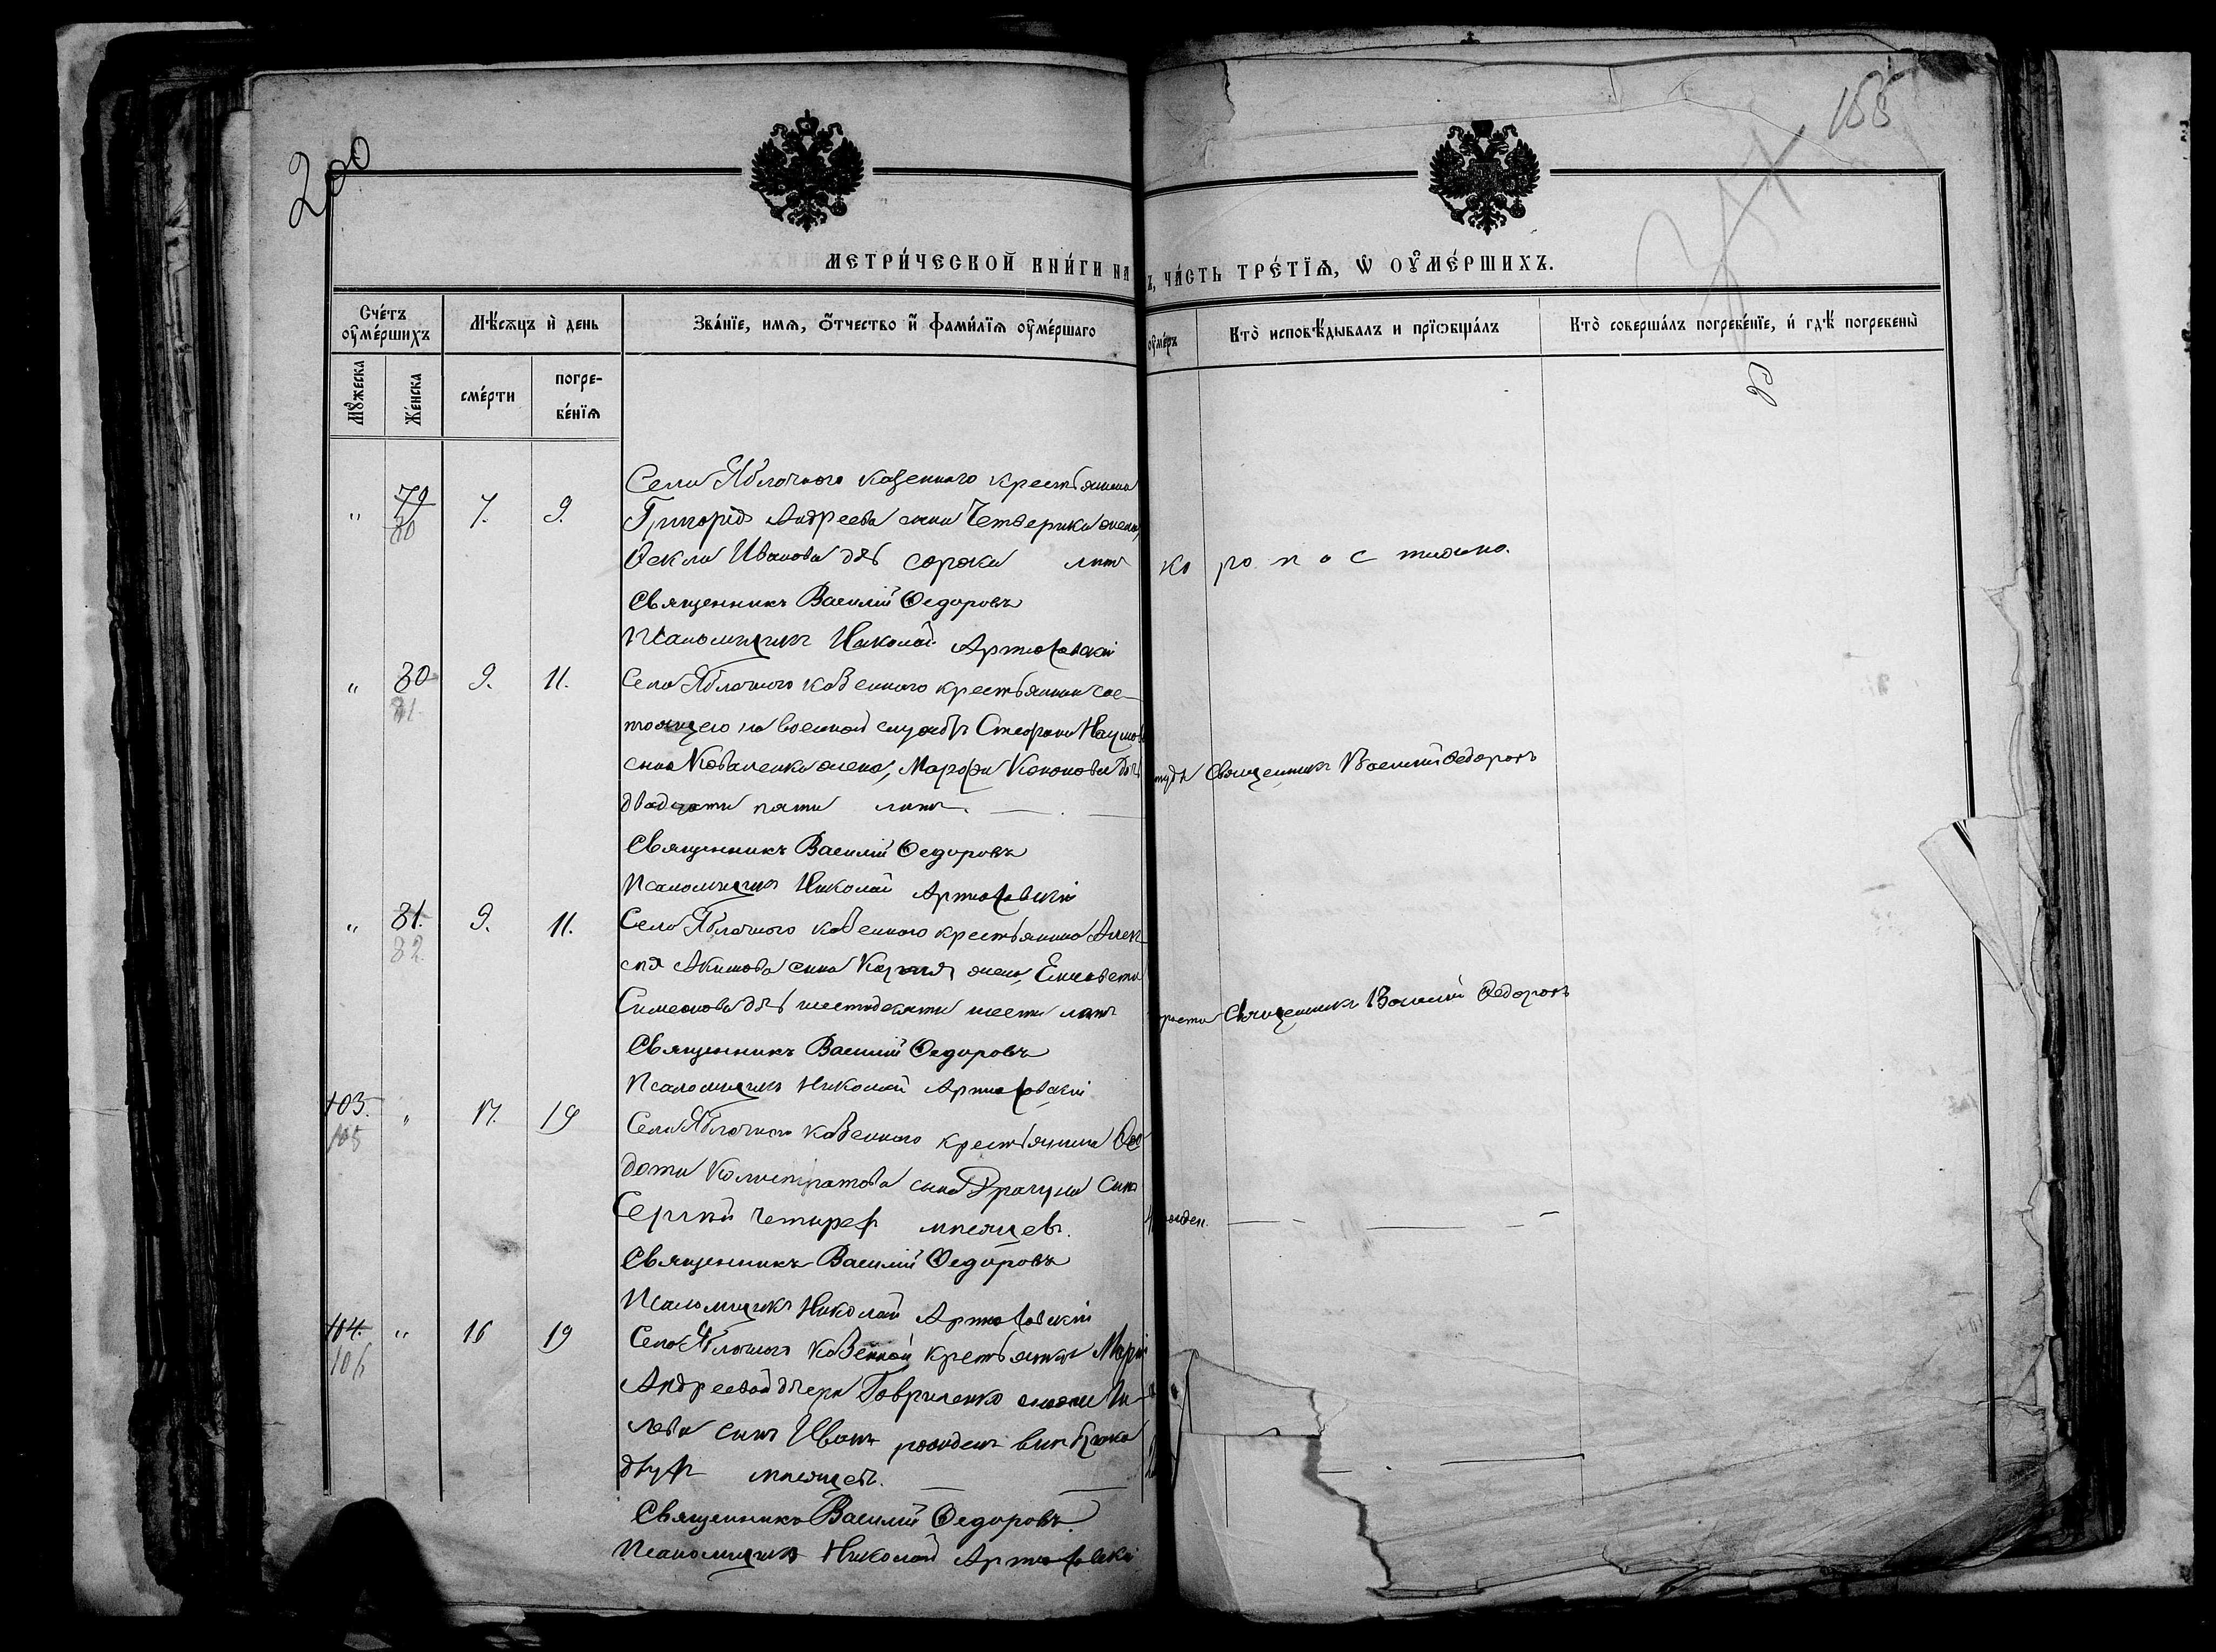 200
155
МЕТРИ́ЧЕСКОЙ КНИ́ГИ НА
Ъ, ЧА́СТЬ ТРЕ́ТЇѦ, Ѡ҆ ОУ҆МЕ́РШИХЪ.
Сче́тъ оу҆ме́ршихъ
Мѣ́сѧцъ и҆ де́нь
Зва́нїе, и́мѧ, ѻ҆́тчество и҆ фами́лїѧ оу҆ме́ршаго
оу҆ме́ръ
Кто̀ исповѣ́дывалъ и прїѡбща́лъ
Кто̀ соверша́лъ погребе́нїе, и҆ гдѣ̀ погребены̀
Мꙋ́жеска
Же́нска
сме́рти
погре-
бе́нїѧ
Села Яблочнаго казеннаго крестьянина
" 79 80 7. 9. Григорія Андреева сына Четверика жена,
Ѳекла Иванова дчь сорока лѣтъ
скоропостижно.
Священникъ Василій Ѳедоровъ
Псаломщикъ Николай
" 80 81. 9. 11. Села Яблочнаго казеннаго крестьянина сос-
тоящего на военной службѣ Стефана Наумова
сына Коваленка жена, Марфа Кононова дчь
Священникъ Василій Ѳедоровъ
двадцати пяти лѣтъ.
Священникъ Василій Ѳедоровъ
Псаломщикъ Николай
" 81. 82. 9. 11. Села Яблочнаго казеннаго крестьянина Алек-
сѣя Акимова сына жена, Елисавета
Симеонова дчь шестидесяти шести лѣтъ
Священникъ Василій Ѳедоровъ
Священникъ Василій Ѳедоровъ
Псаломщикъ Николай
103. 105 " 17. 19 Села Яблочнаго казеннаго крестьянина Ѳео-
дота Калистратова сына Драгуна сынъ
Сергѣй четырехъ мѣсяцевъ.
Священникъ Василій Ѳедоровъ
Псаломщикъ Николай
104. 106 " 16 19 Села Яблочнаго казенной крестьянки Маріи
Андреевой дчери Гавриленко
сынъ Иванъ рожденъ внѣ брака
двухъ мѣсяцевъ.
Священникъ Василій Ѳедоровъ.
Псаломщикъ Николай